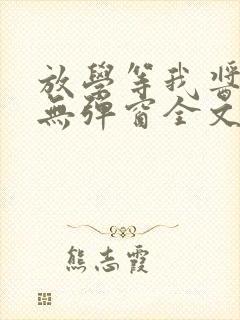 放學等我 醬
無彈窗全文
熊志霞